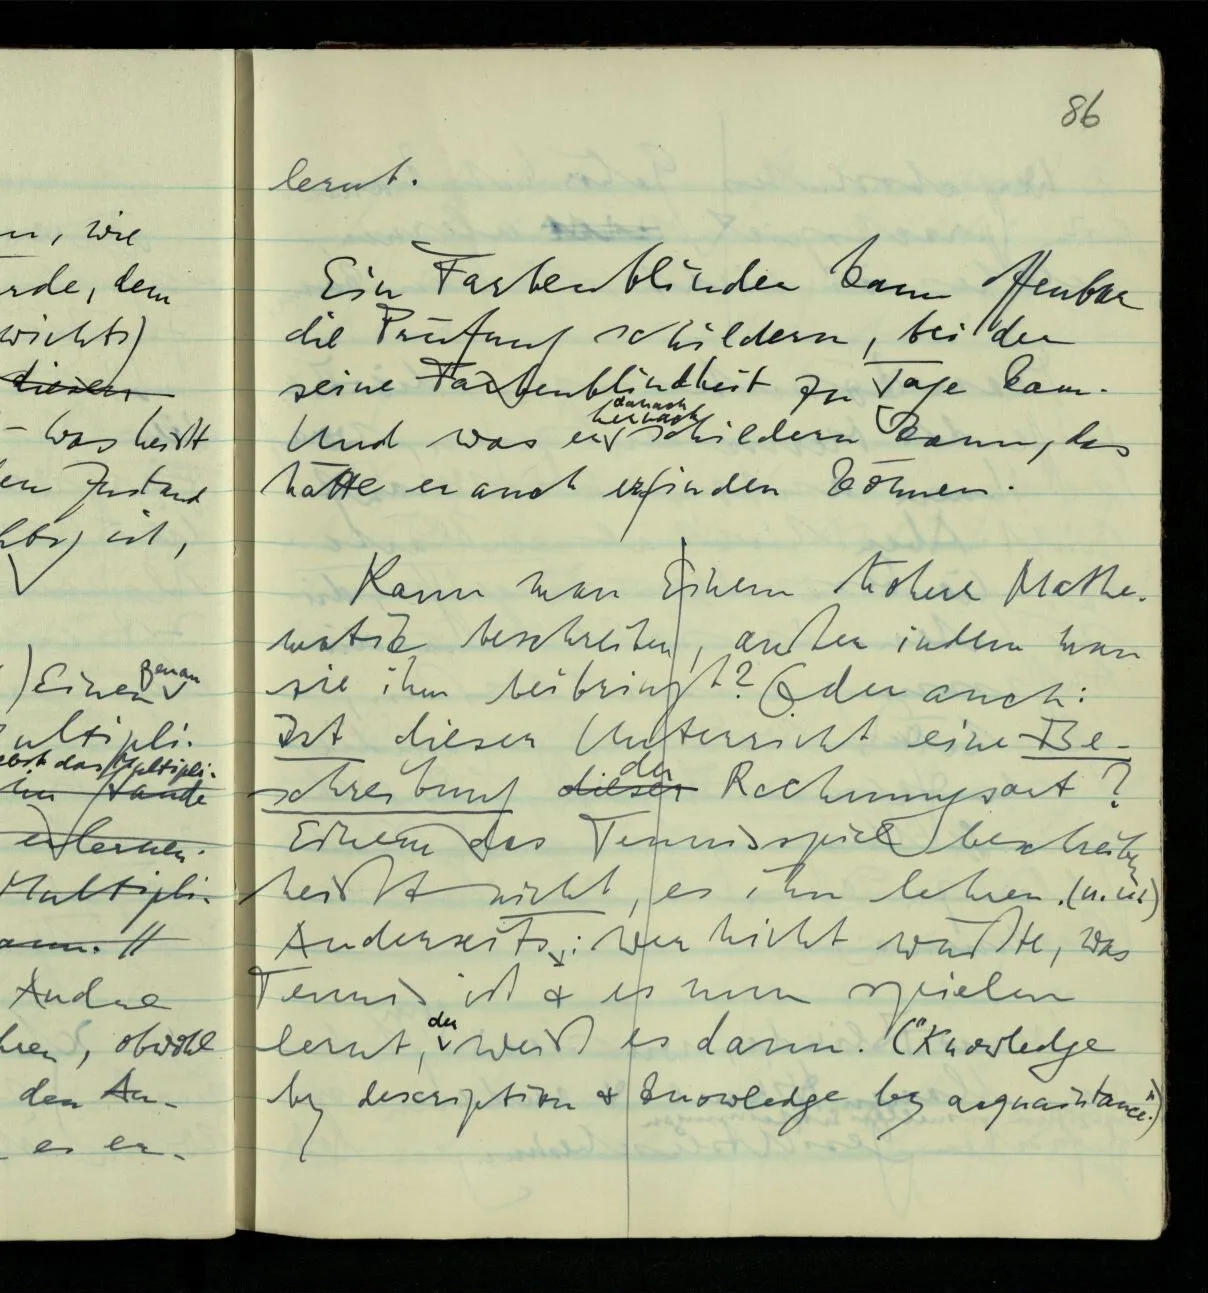 86
lernt.
Ein Farbenblinder kann offenbar
die Prüfung schildern, bei der
seine Farbenblindheit zu Tage kam.
danach
hernach
Und was er schildern kann, das
hätte er auch erfinden können.
Kann man Einem höhere Mathe-
matik beschreiben, außer indem man
sie ihm beibringt? Oder auch:
Ist dieser Unterricht eine Be-
der
schreibung dieser Rechnungsart?
Einem das Tennisspiel beschreiben
heißt nicht, es ihn lehren. (u. u.)
Anderseits: wer nicht wußte, was
Tennis ist & es nun spielen
der
lernt, weiß es dann. ("Knowledge
by description & knowledge by acquaintance".)
n, wie
rde, dem
wichts)
diesen
– was heißt
en Zustand
ist,
) Einen Genau
ultipli-
das Multipli-
erlernen.
Multipli-
ann. //
Andre
hren, obwohl
den An-
es er-